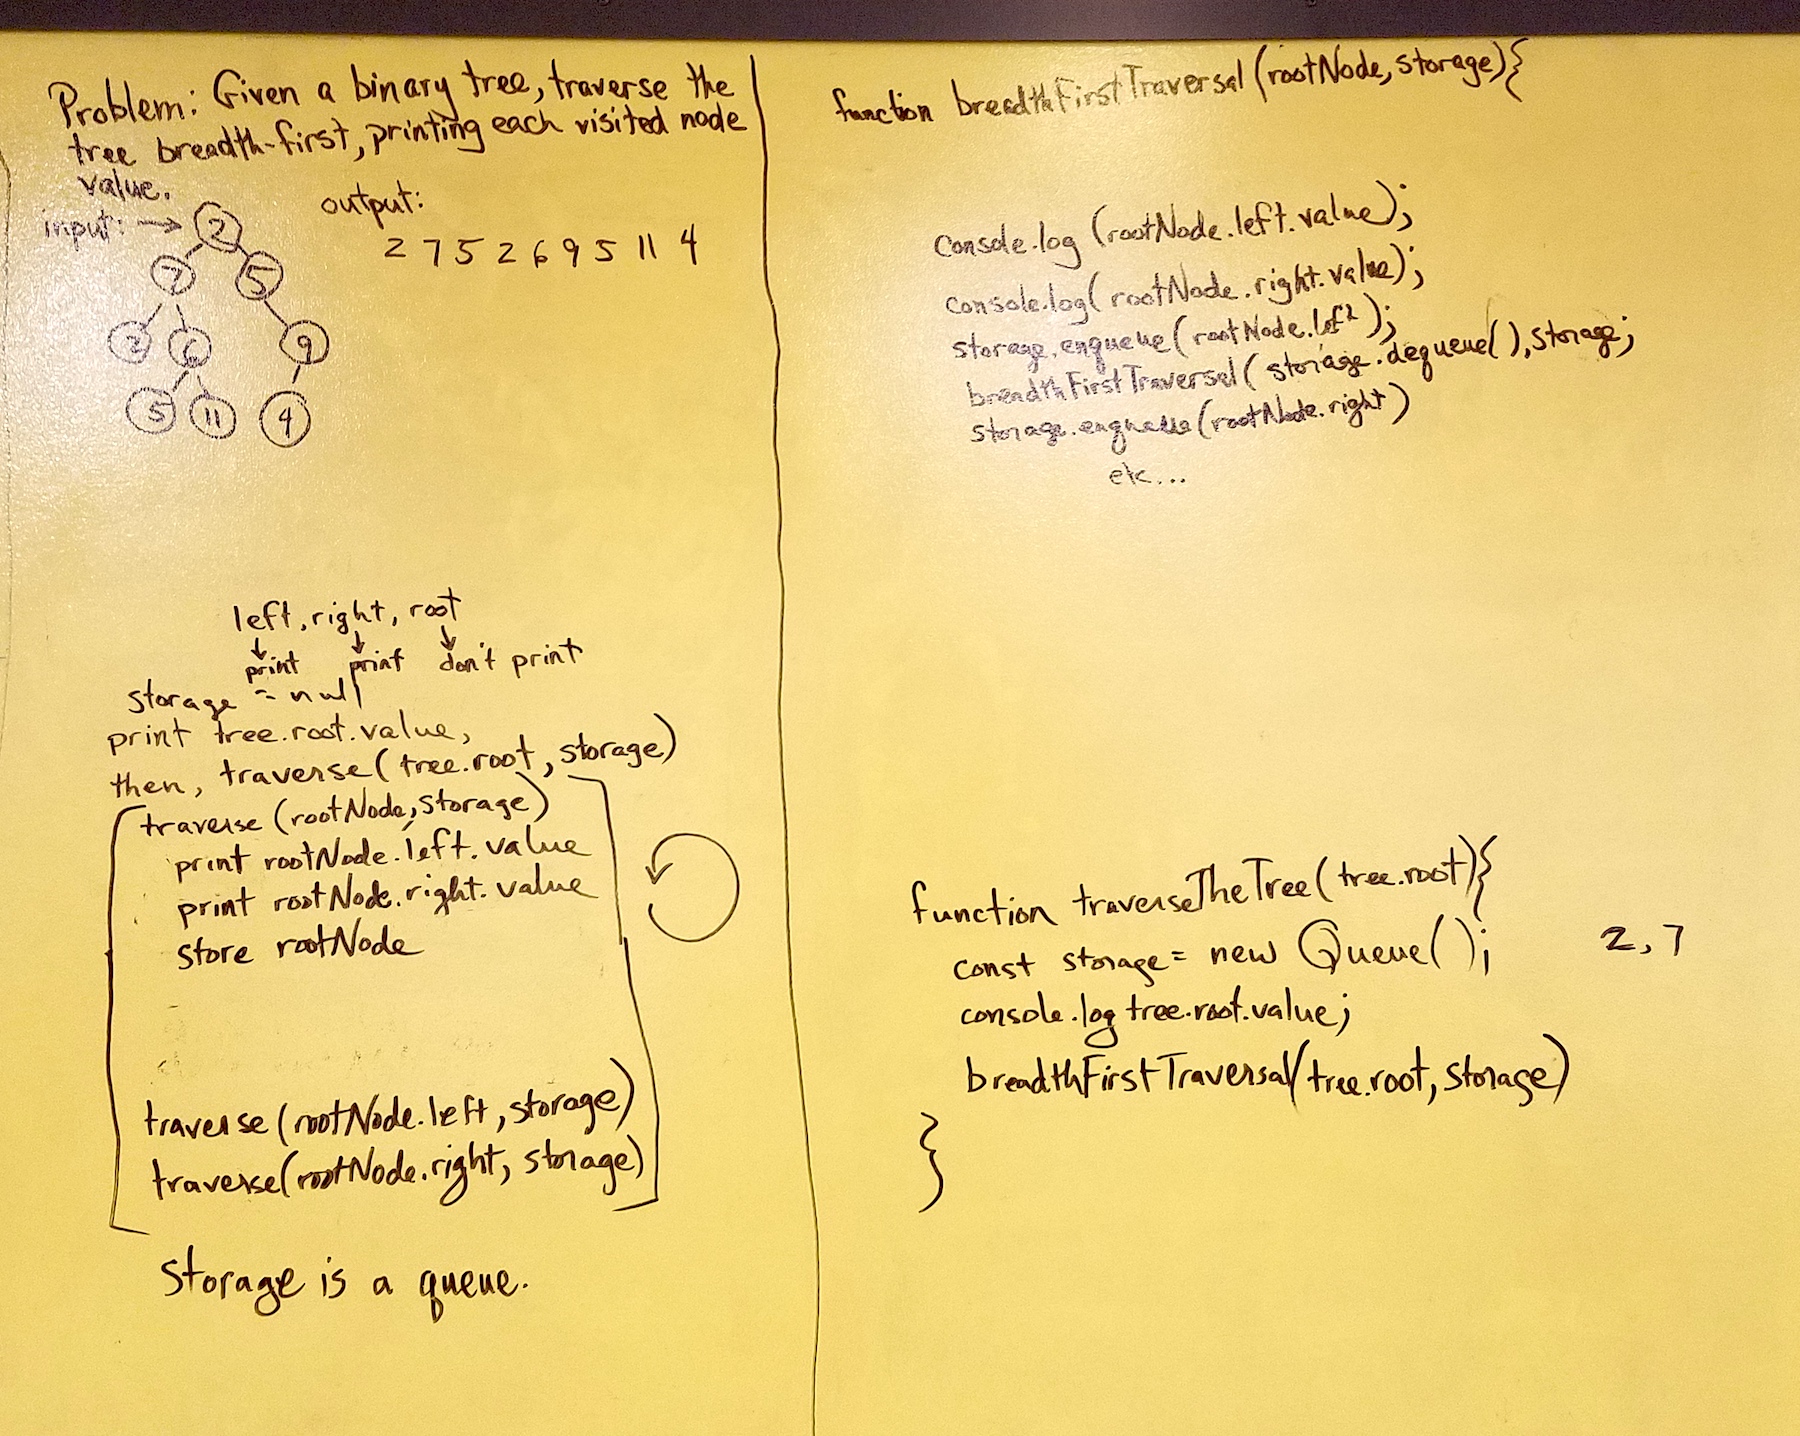 Problem: Given a binary tree, traverse the
tree breadth-first, printing each visited node
value.
input: →
output:
2 7 5 2 6 9 5 11 4
2
7 5
2 6 9
5 11 4
left, right, root
↓ ↓ ↓
print print don't print
storage = null
print tree.root.value,
then, traverse(tree.root, storage)
traverse (rootNode, storage)
print rootNode.left.value
print rootNode.right.value
store rootNode
traverse (rootNode.left, storage)
traverse(rootNode.right, storage)
Storage is a queue.
function breadthFirstTraversal (rootNode, storage){
console.log (rootNode.left.value);
console.log( rootNode.right.value);
storage.enqueue( rootNode.left );
breadthFirstTraversal( storage.dequeue( ), storage;
storage.enqueue (rootNode.right)
etc...
function traverseTheTree( tree.root){
const storage = new Queue( );
2, 7
console.log tree.root.value;
breadthFirstTraversal(tree.root, storage)
}